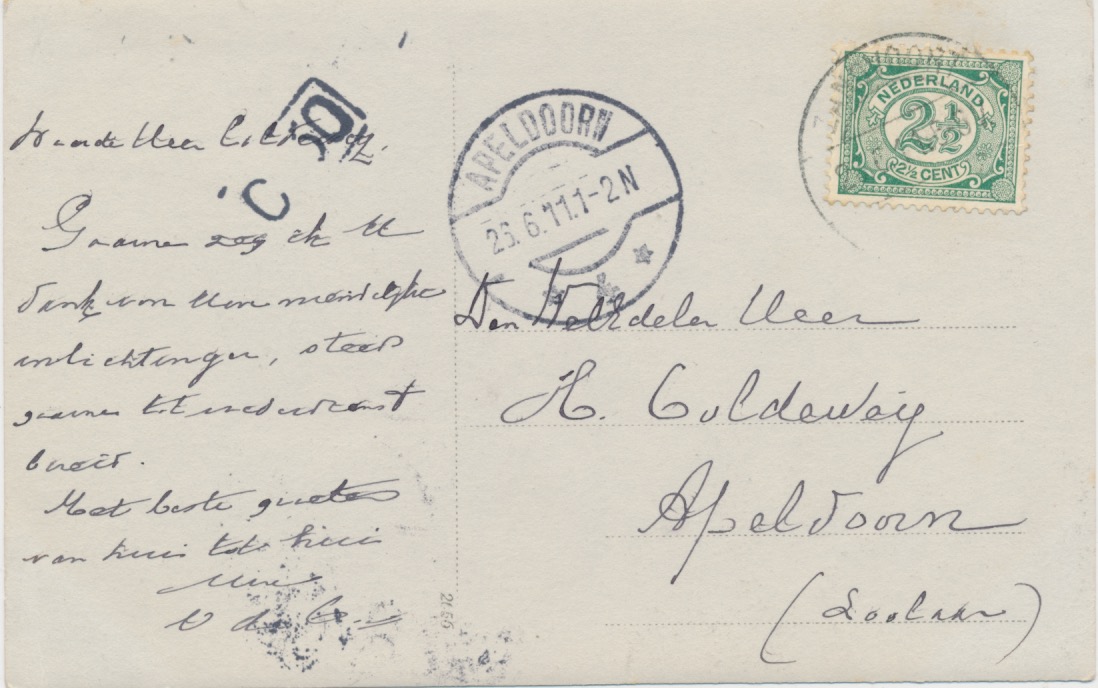 Waarde Heer
Gaarne zeg ik U
dank van Uwe
inlichtingen, steeds
gaarne tot wederdienst
bereid.
Met beste groeten
van huis tot huis
APELDOORN
26.6.11.1-2N
NEDERLAND
2½
2½ CENT
Den WelEdelen Heer
H. Coldeweij
Apeldoorn
(Loolaan)